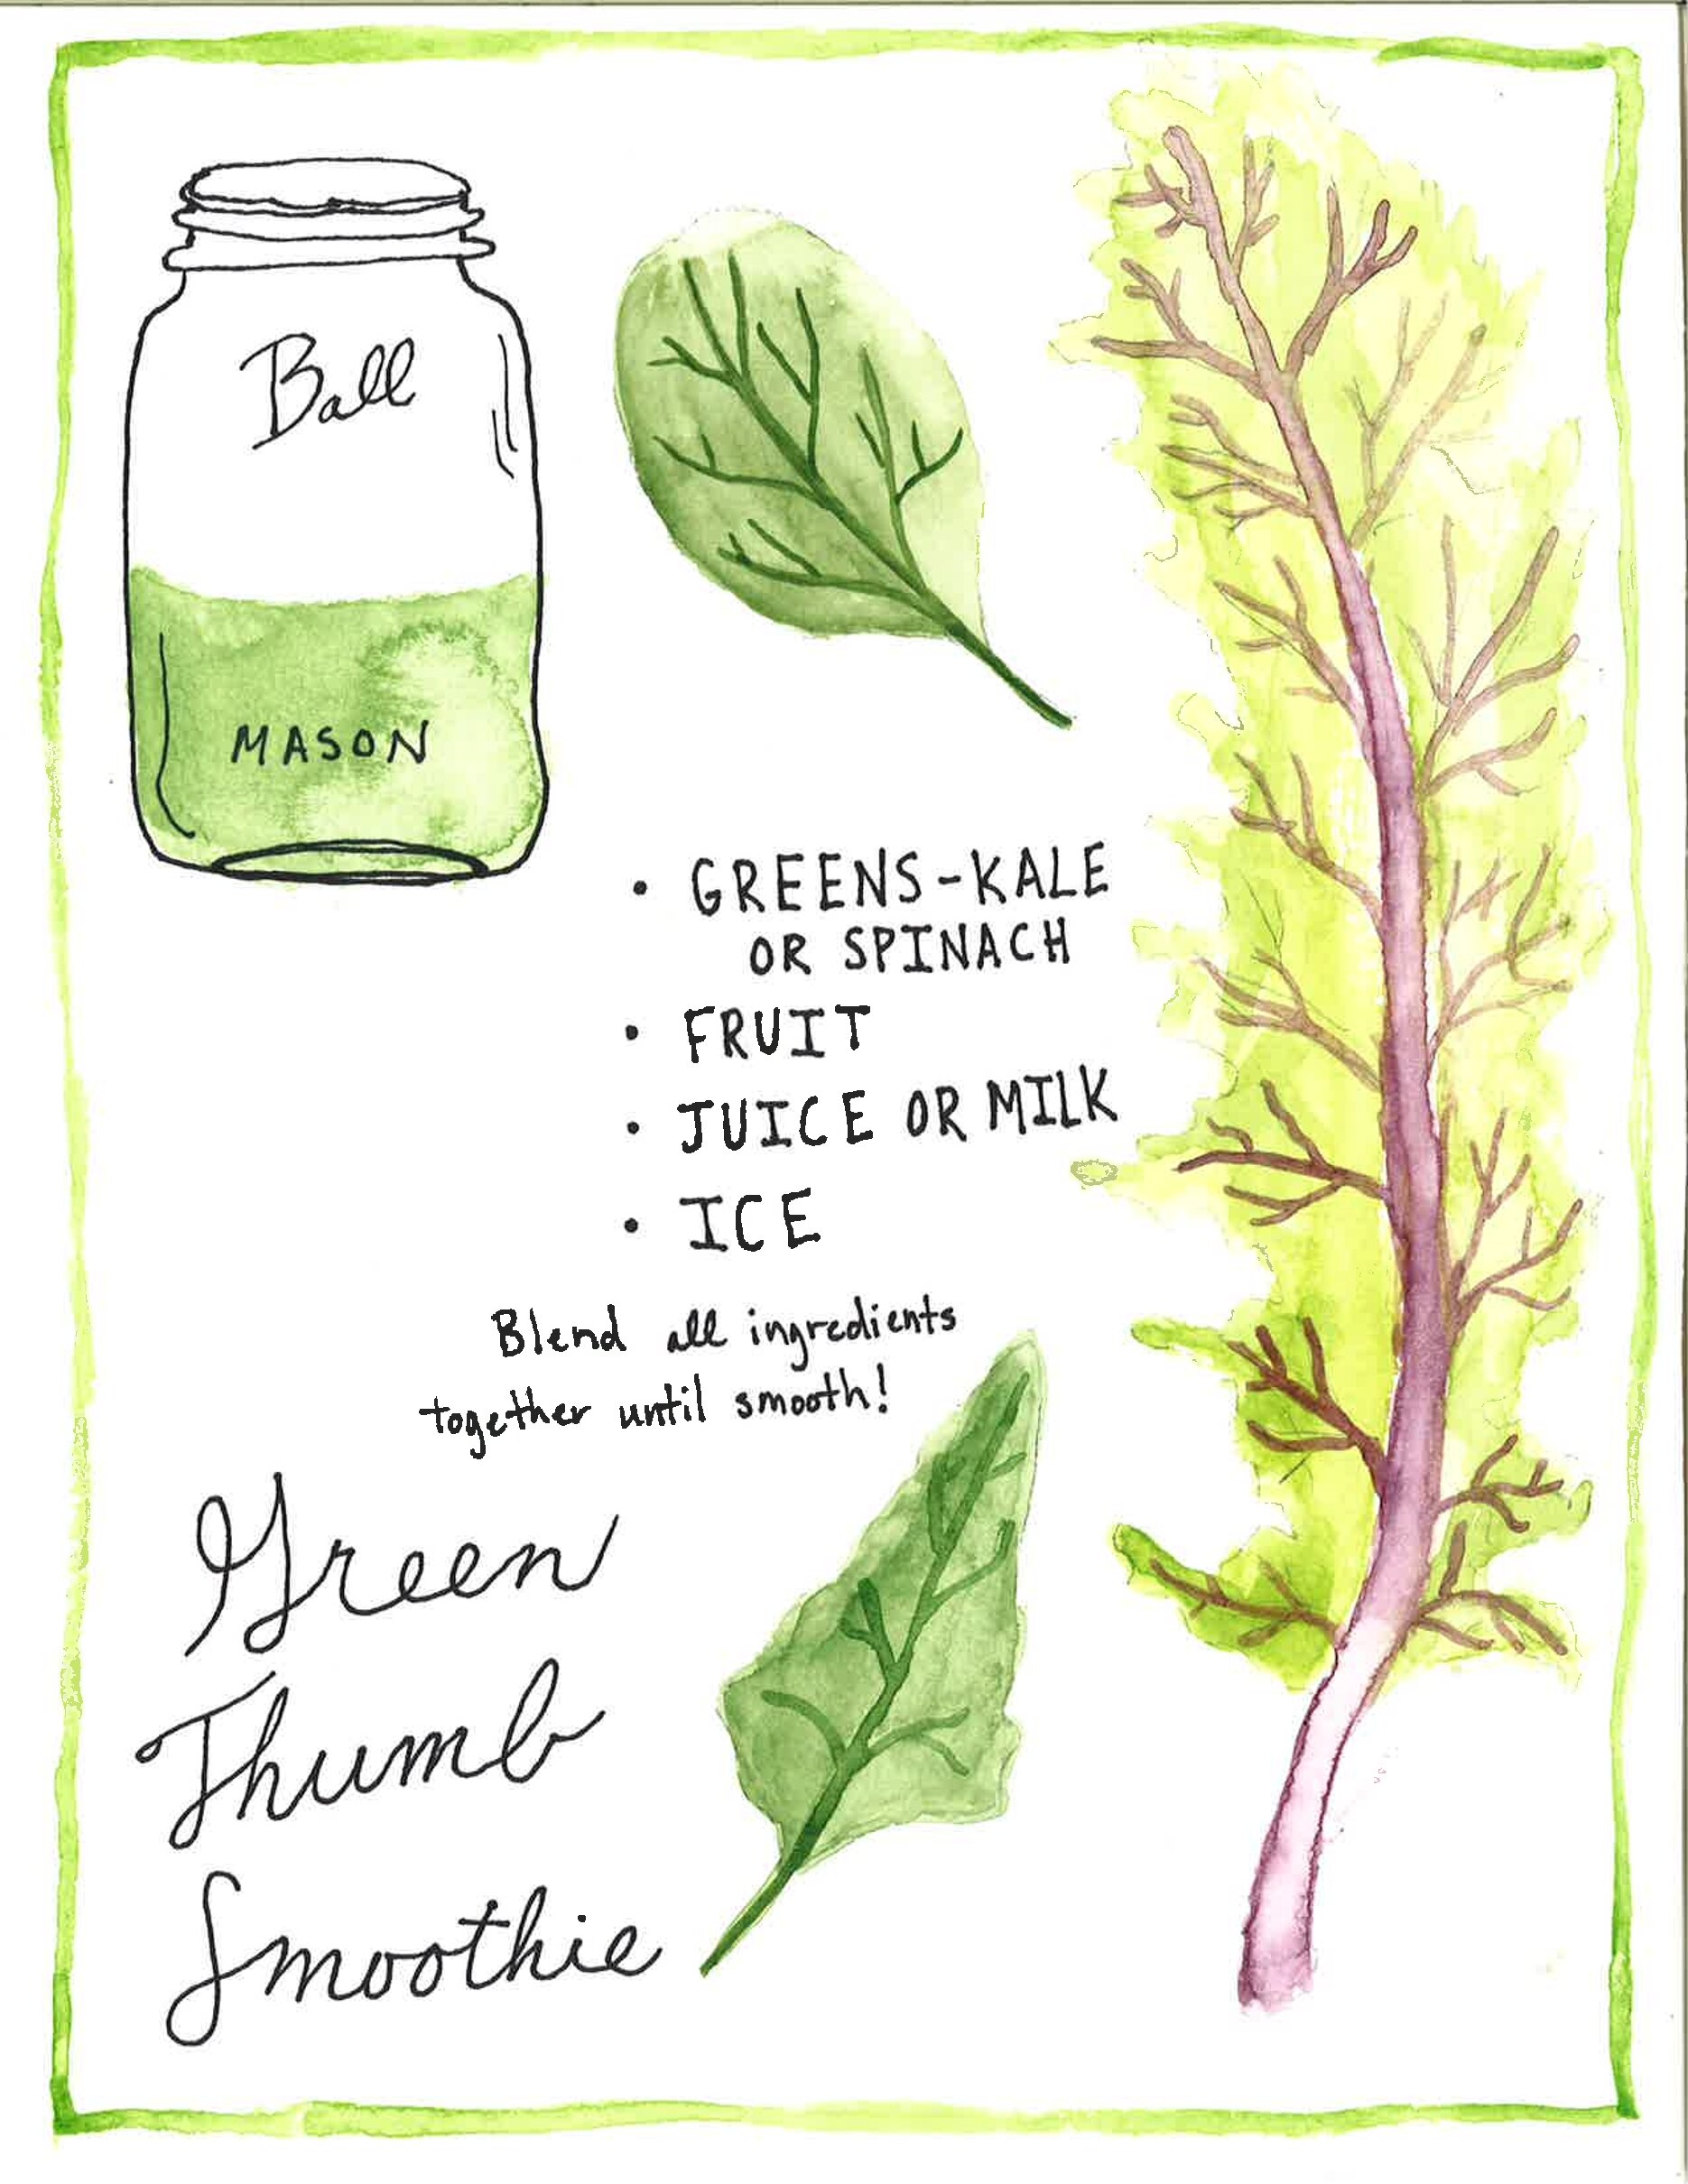 Ball
MASON
• GREENS-KALE
OR SPINACH
• FRUIT
• JUICE OR MILK
• ICE
Blend all ingredients
together until smooth!
Green
Thumb
Smoothie